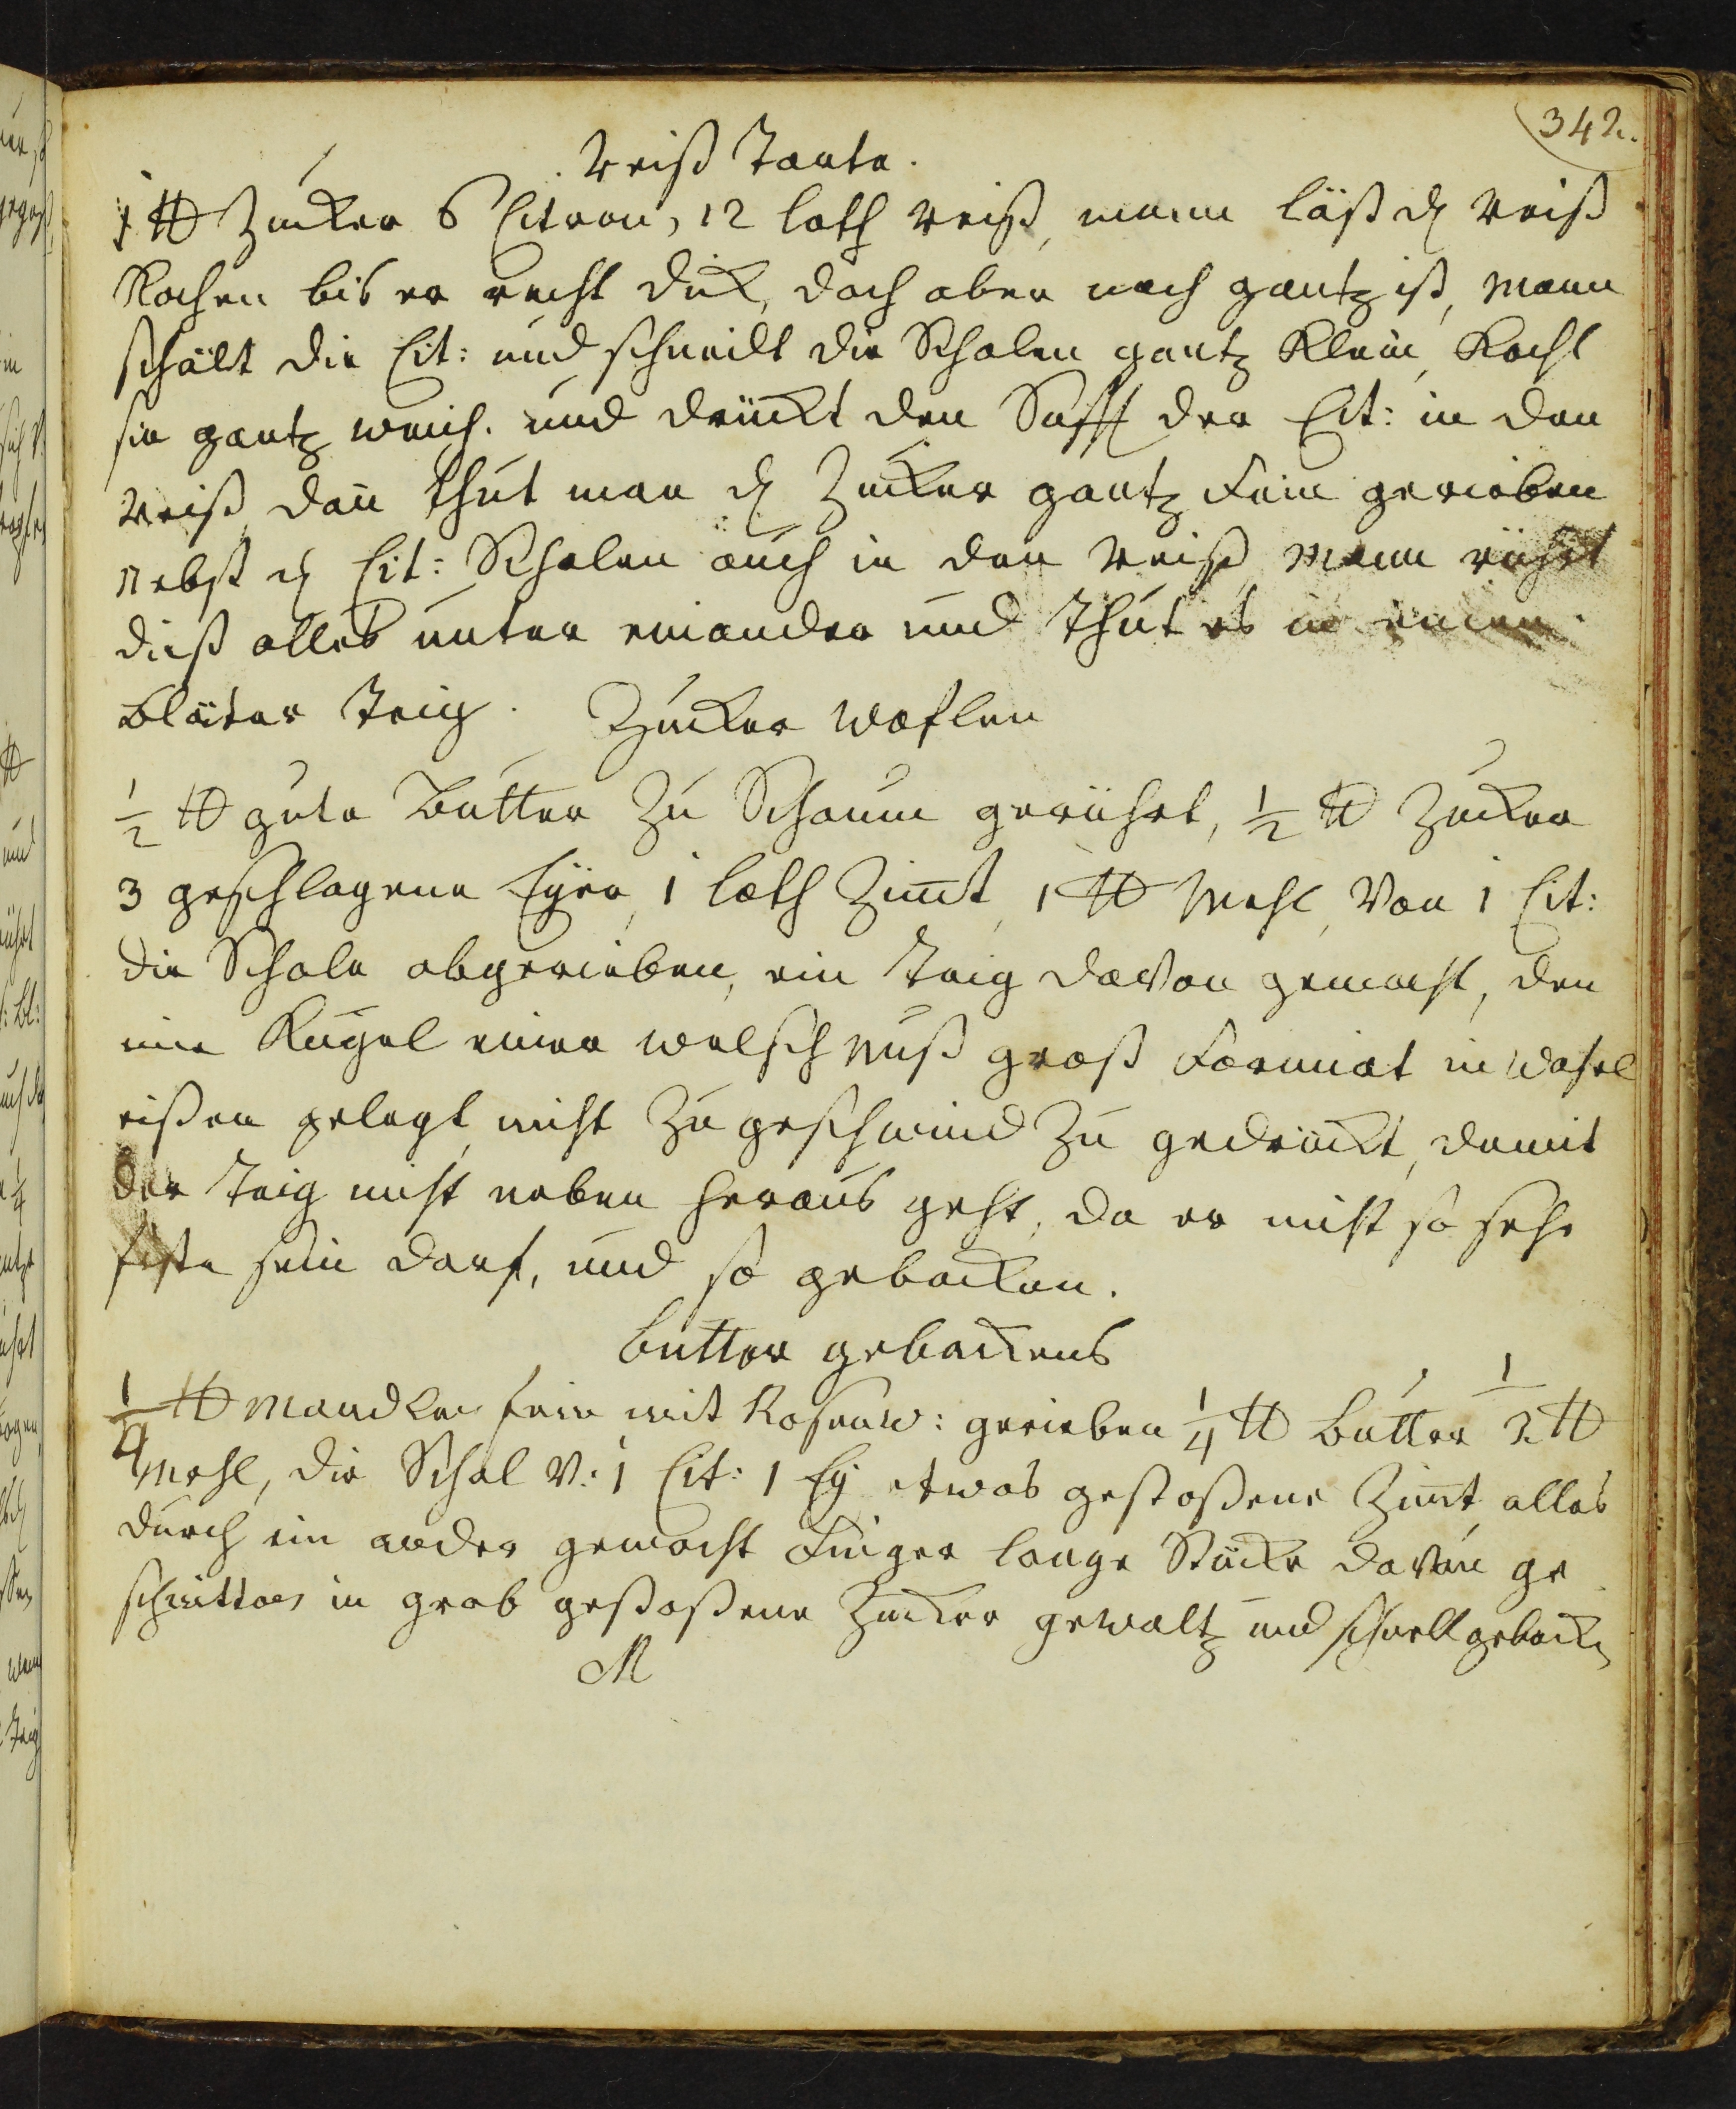 342.
Reiß Tarte.
1 ℔ Zucker 6 Citron, 12 loth Reiß, mann läßt dn Reiß
Kochen bis er recht dick, doch aber noch gantz ist, Mann
schält die Cit: und schneidt die Schalen gantz Klein, Kocht
sie gantz weich. und drückt den Safft der Cit: in den
Reiß, dañ thut man dn Zucker gantz fein gerieben
nebst dn Cit: Schalen auch in den Reiß, Mann rührt
dieß alles unter einander und thut es in einen
Bläter Teig. Zucker Waflen
½ ℔ gute Butter zu Schaum gerührt, ½ ℔ Zucker
3 geschlagene Eÿer, 1 loth Zim̄t, 1 ℔ Mehl, Von 1 Cit:
die Schale abgerieben, ein Teig davon gemacht, den
wie Kugel einer welsch Nuß groß Formiat in Wafel
eißen gelegt, nicht zu geschwind zu gedrückt, damit
der Teig nicht neben heraus geht, da er nicht so sehr
feste sein darf, und so gebacken.
Butter gebackens
¼ ℔ Mandlen fein mit Rosenw: gerieben ¼ ℔ Butter ½ ℔
Mehl, die Schal v: 1 Cit: 1 Eÿ etwas gestoßene Zim̄t alles
durch ein ander gemacht Finger lange Stücke davon ge
schnitten in grob gestoßene Zucker gewaltz und schnell gebacken
M